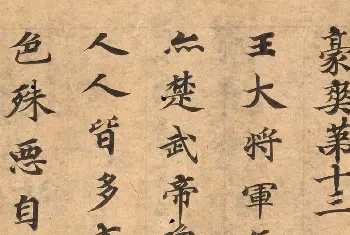 豪爽苐十三
王大將軍
亦楚武帝
人人皆多
色殊悪自